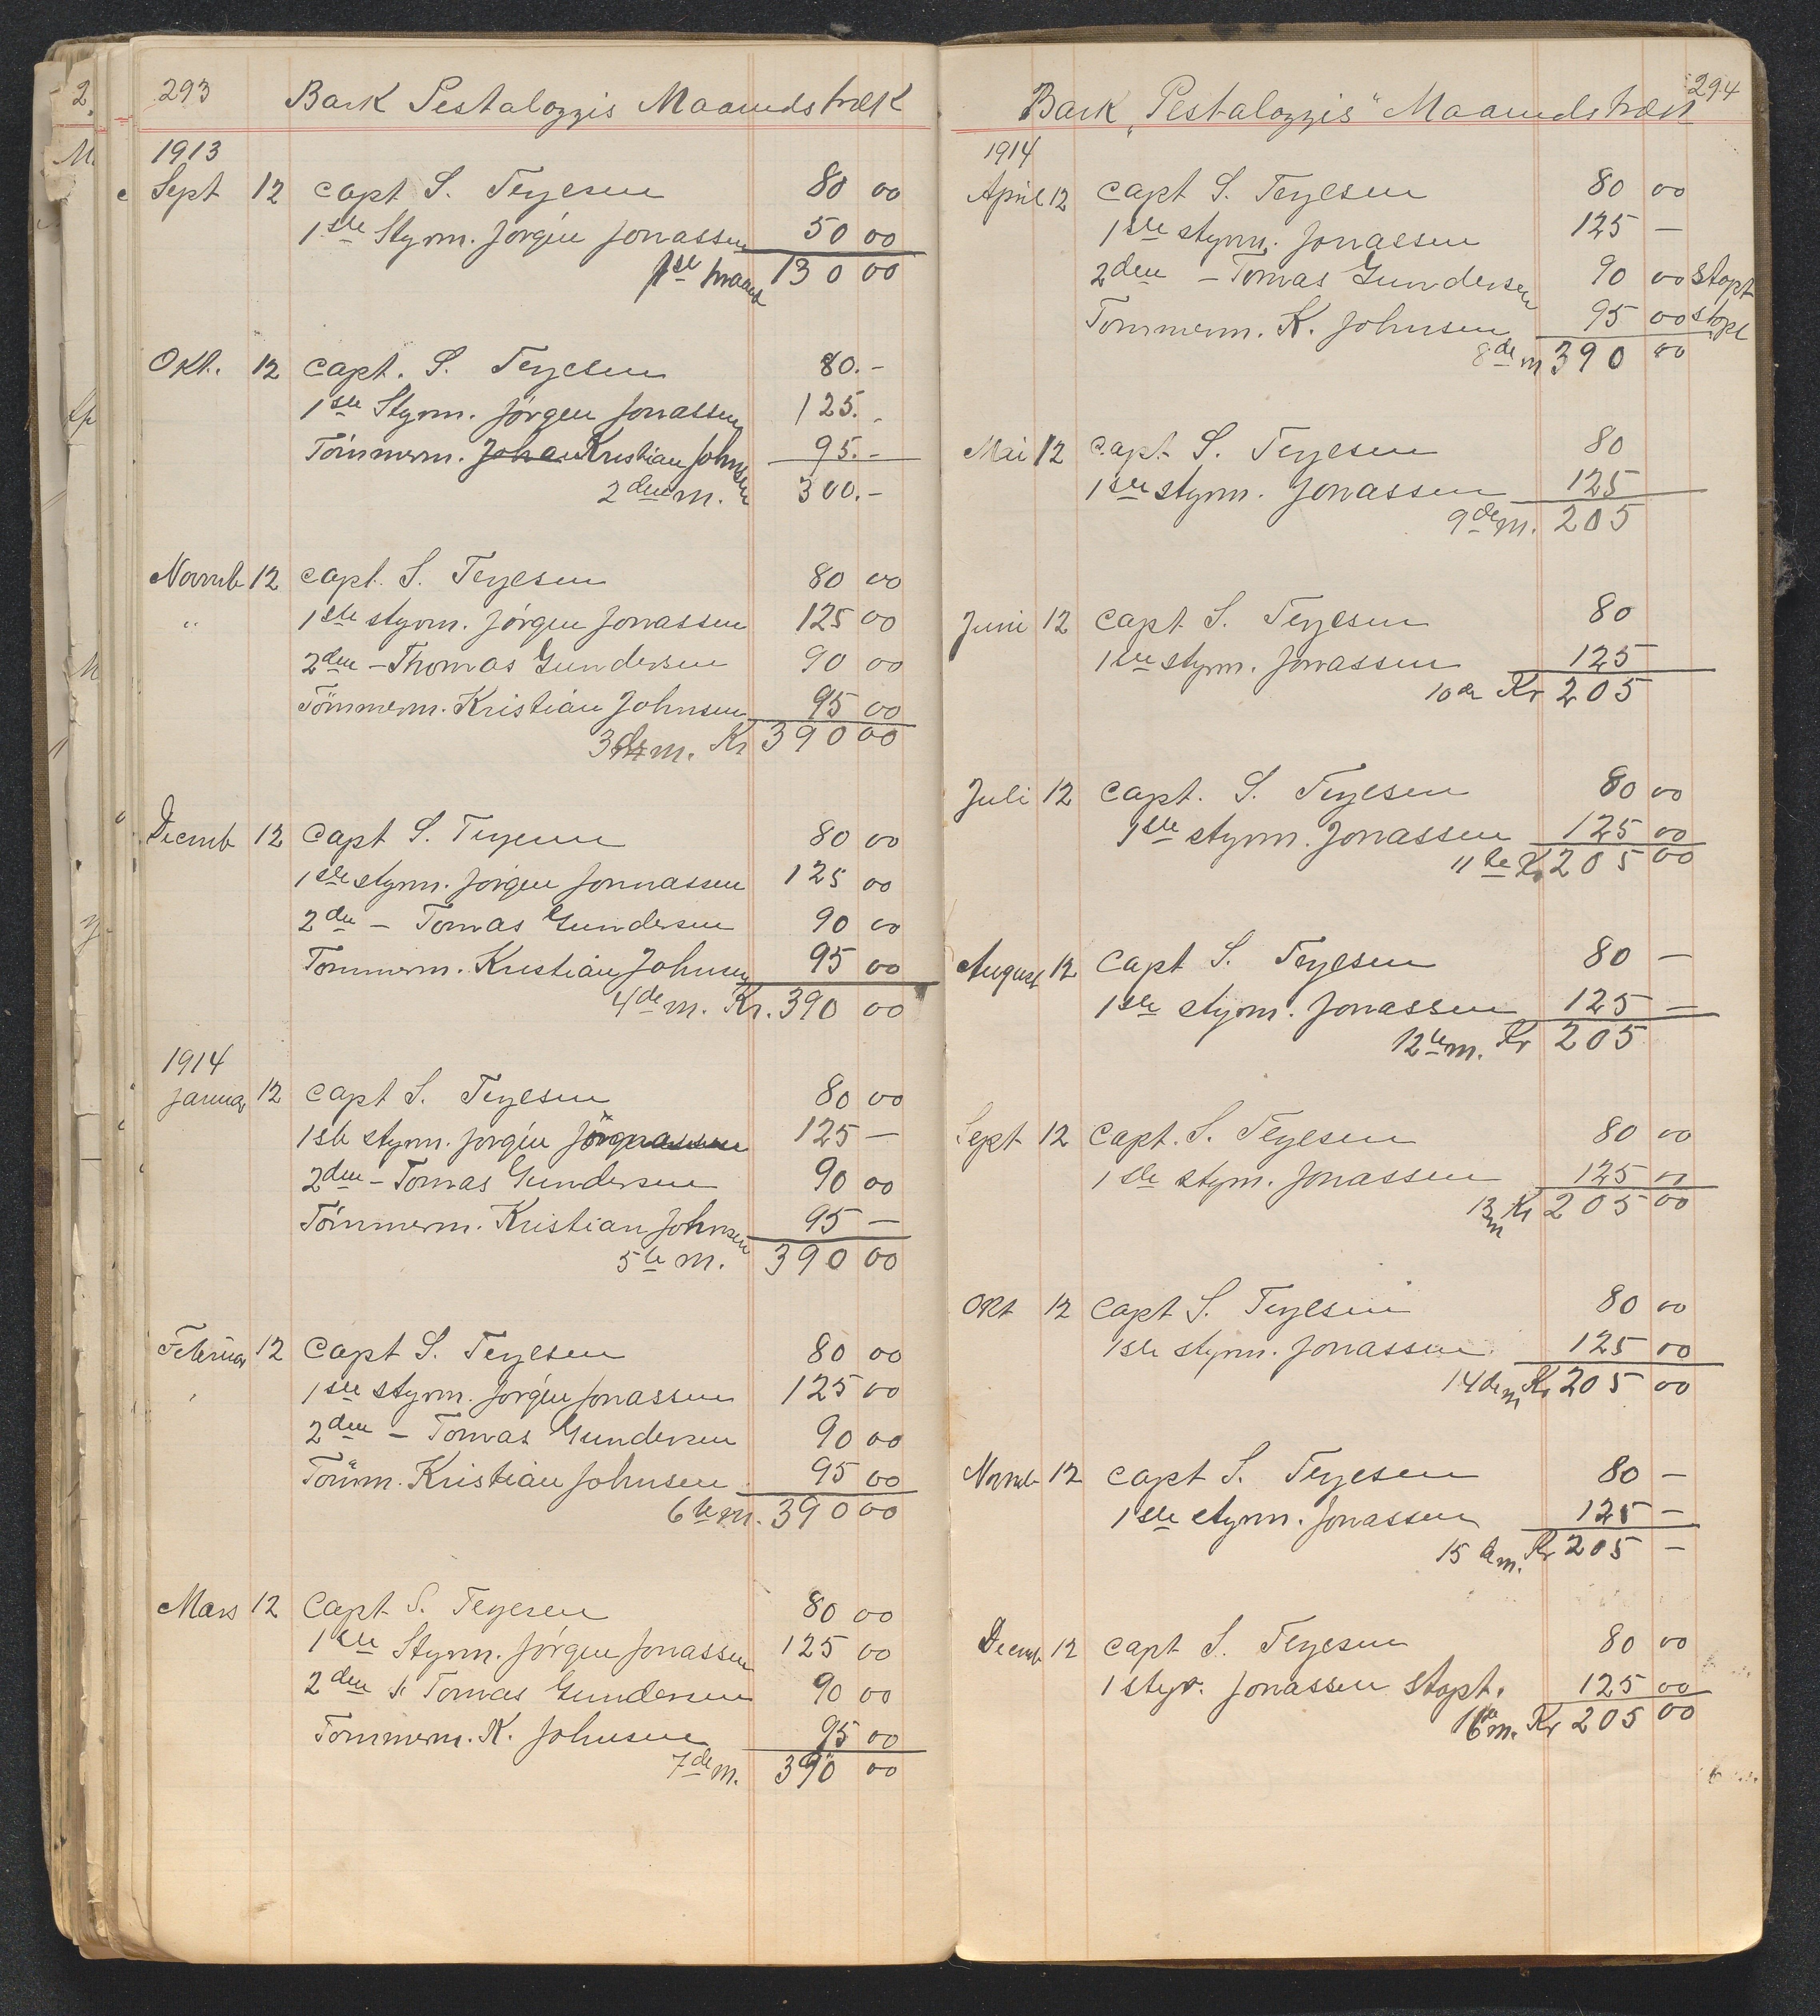 293 Bark Pestalozzis Maanedstræk
1913
Sept 12 Capt S. Terjesen 80 00
1ste Styrm. Jörgen Jonassen 50 00
1ste maaned 130 00
Okt. 12 Capt. S. Terjesen 80.-
1ste Styrm. Jörgen Jonassen 125.-
Tömmerm. Johan Kristian Johnsen 95.-
2den m. 300.-
Novmb 12 Capt. S. Terjesen 80 00
" 1ste styrm. Jörgen Jonassen 125 00
2den - Thomas Gundersen 90 00
Tömmerm. Kristian Johnsen 95 00
3de m. Kr 390 00
Decmb 12 Capt S. Terjesen 80 00
1ste styrm. Jörgen Jonnassen 125 00
2den - Tomas Gundersen 90 00
Tommerm. Kristian Johnsen 95 00
4de m. Kr. 390 00
1914
Januar 12 Capt S. Terjesen 80 00
1ste styrm. Jorgen 125 -
2den - Tomas Gundersen 90 00
Tömmerm. Kristian Johnsen 95 -
5te m. 390 00
Februar 12 Capt S. Terjesen 80 00
1ste styrm. Jorgen Jonassen 125 00
2den - Tomas Gundersen 90 00
Tömm. Kristian Johnsen 95 00
6te m. 390 00
Mars 12 Capt S. Terjesen 80 00
1ste Styrm. Jörgen Jonassen 125 00
2den s Tomas Gundersen 90 00
Tommerm. K. Johnsen 95 00
7de m. 390 00
294
Bark „Pestalozzis" Maanedstræk
1914
April 12 Capt S. Terjesen 80 00
1ste styrm. Jonassen 125 -
2den - Tomas Gundersen 90 00 stopt
Tommerm. K. Johnsen 95 00 stopt
8de m 390 00
Mai 12 Capt S. Terjesen 80
1ste styrm. Jonassen 125
9de m. 205
Juni 12 Capt S. Terjesen 80
1ste styrm. Jonassen 125
10de Kr 205
Juli 12 Capt. S. Terjesen 80 00
1ste styrm. Jonassen 125 00
11te Kr 205 00
August 12 Capt S. Terjesen 80 -
1ste styrm. Jonassen 125 -
12te m. Kr 205
Sept 12 Capt. S. Terjesen 80 00
1ste styrm. Jonassen 125 00
13 m Kr 205 00
Okt 12 Capt S. Terjesen 80 00
1ste styrm. Jonassen 125 00
14de m Kr 205 00
Novmb 12 Capt S. Terjesen 80 -
1ste styrm. Jonassen 125 -
15 de m. Kr 205 -
Decmb 12 Capt S. Terjesen 80 00
1 styr. Jonassen stopt. 125 00
16de m. Kr 205 00